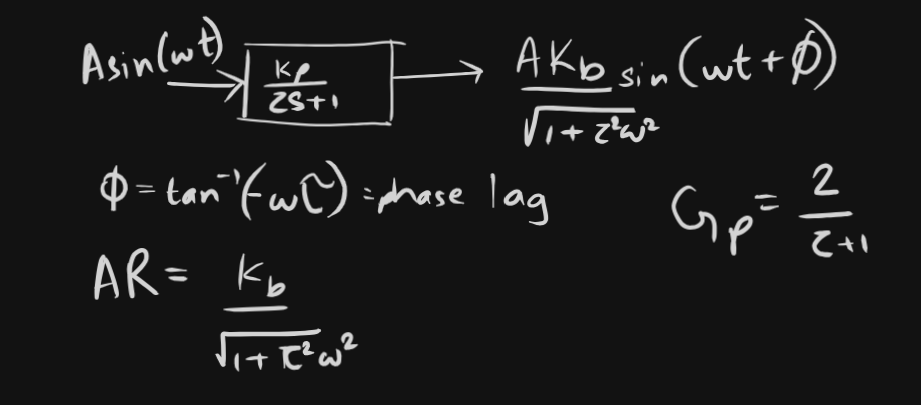 Asin(ωt) → Kp/(τs+1) → AKb/√(1+τ²ω²) sin(ωt+ϕ)
ϕ = tan⁻¹(-ωτ) = phase lag
Gp = 2/(τ+1)
AR = Kb/√(1+τ²ω²)